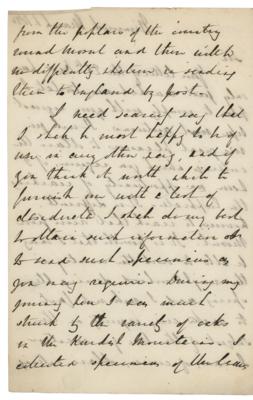 from the poplars of the country
round Mosul and there will be
no difficulty whatever in sending
them to England by post.
I need scarcely say that
I shall be most happy to be of
use in any other way, and if
you think it worth while to
furnish me with a list of
desiderata I shall do my best
to obtain such information or
to send such specimens as
you may require. During my
journey here I was much
struck by the variety of oaks
in the Kurdish Mountains. I
collected specimens of the leaves